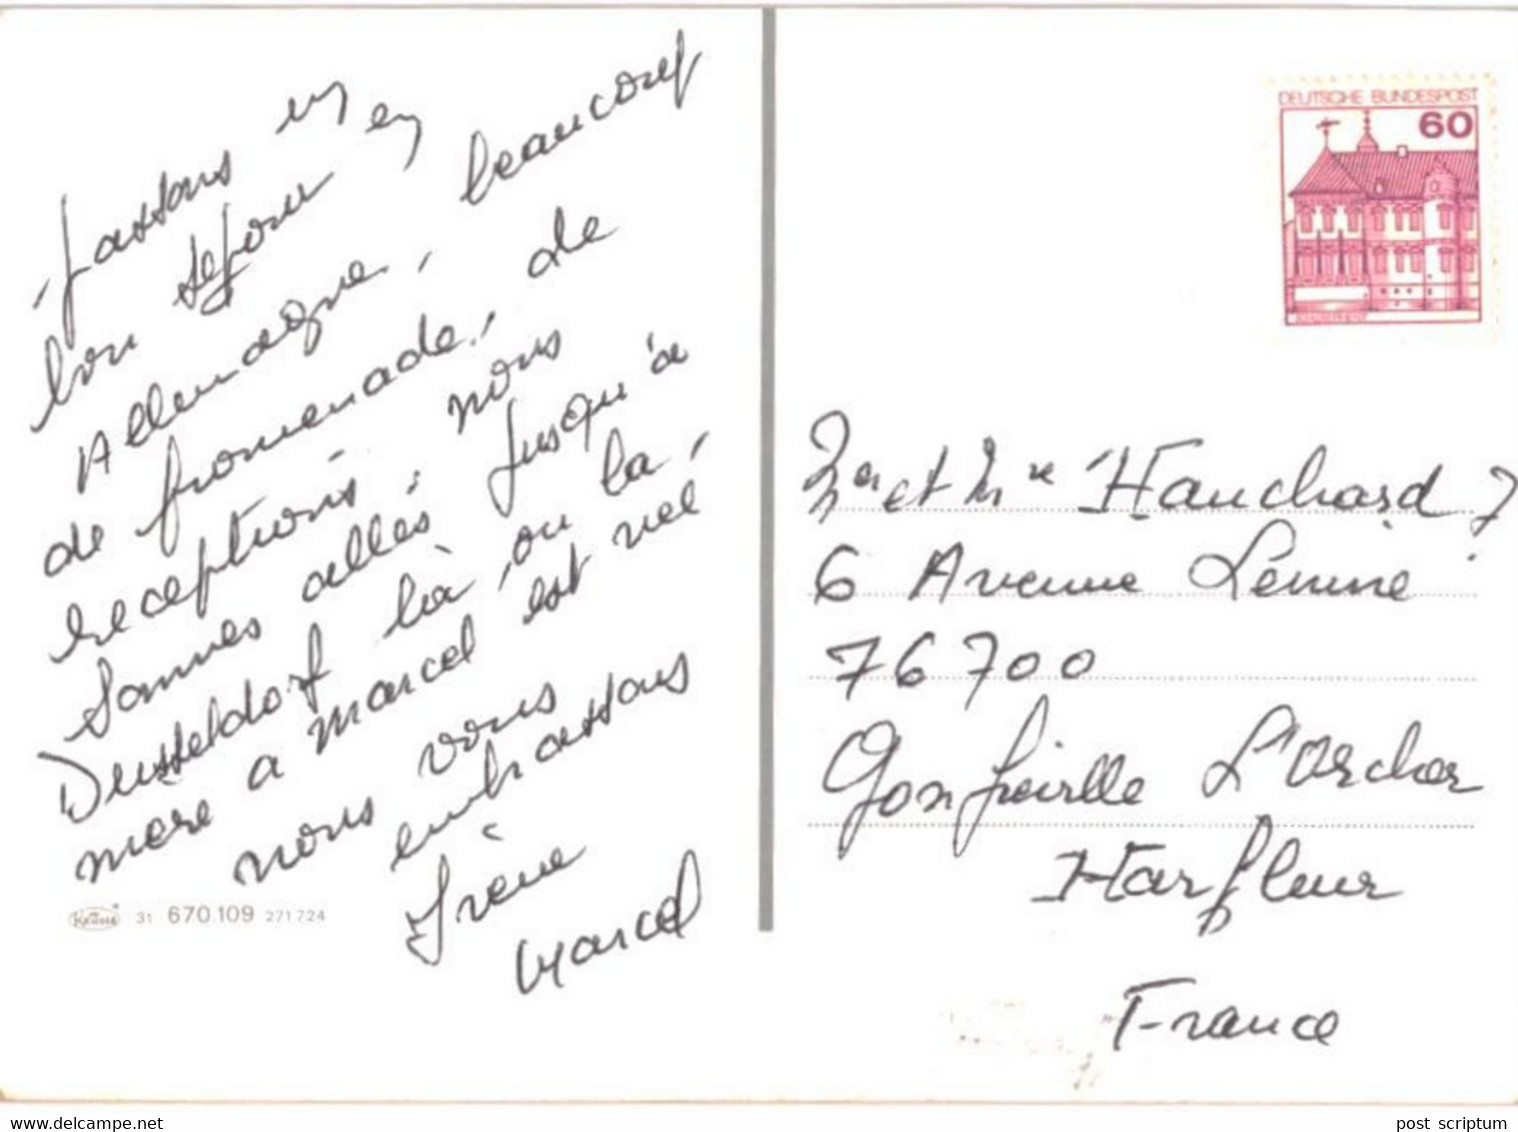 passons un
bon sejour en
Allemagne, beaucoup
de promenade, de
receptions, nous
sommes allés jusqu'à
Dusseldorf là, ou la,
mere a Marcel est neé
nous vous
embrassons
Irène
Marcel
Krüger 31 670.109 271 724
DEUTSCHE BUNDESPOST
60
Mr et Mme Hauchard
6 Avenue Lenine
76700
Gonfreville L'Orcher
Harfleur
France
www.delcampe.net
post scriptum